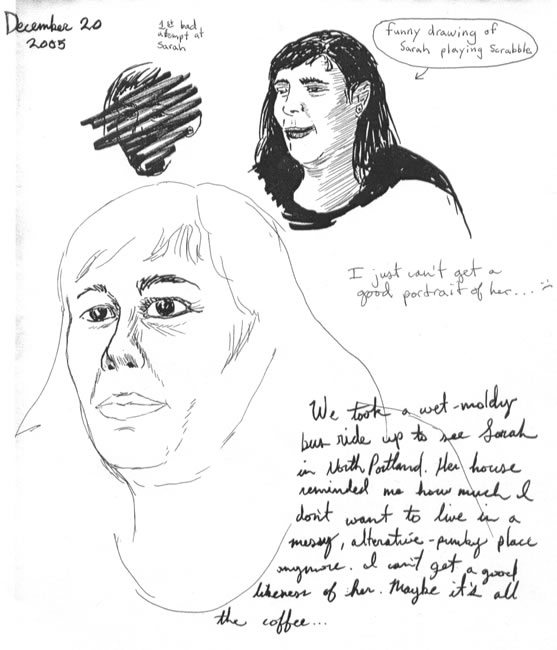 December 20
2005
1st bad
attempt at
Sarah
funny drawing of
Sarah playing Scrabble
I just can't get a
good portrait of her... :(
We took a wet-moldy
bus ride up to see Sarah
in North Portland. Her house
reminded me how much I
don't want to live in a
messy, alternative-punky place
anymore. I can't get a good
likeness of her. Maybe it's all
the coffee...